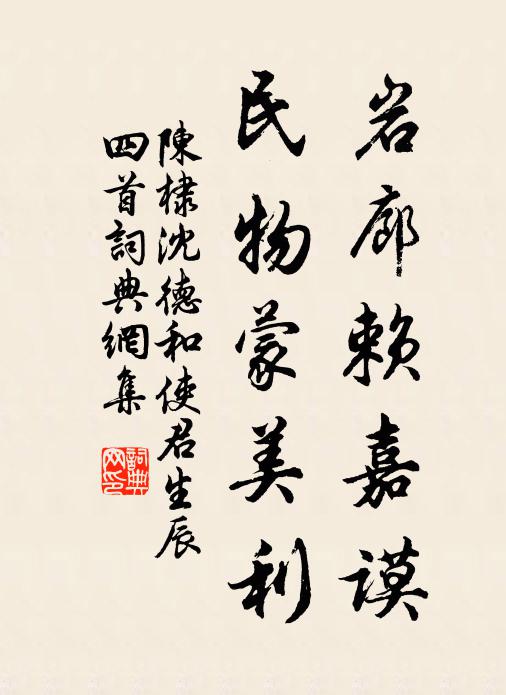 岩廊賴嘉謨
民物蒙美利
陳棣沈德和使君生辰
四首詞典網集
詞典
网印